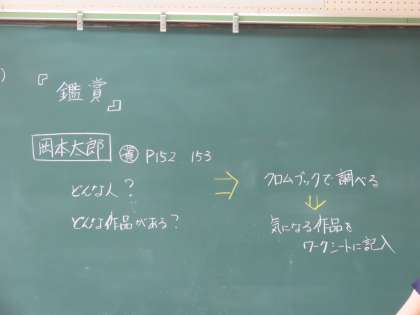 『鑑賞』
岡本太郎 P152 153
どんな人?
どんな作品がある?
⇒ クロムブックで調べる
⇓
気になる作品を
ワークシートに記入